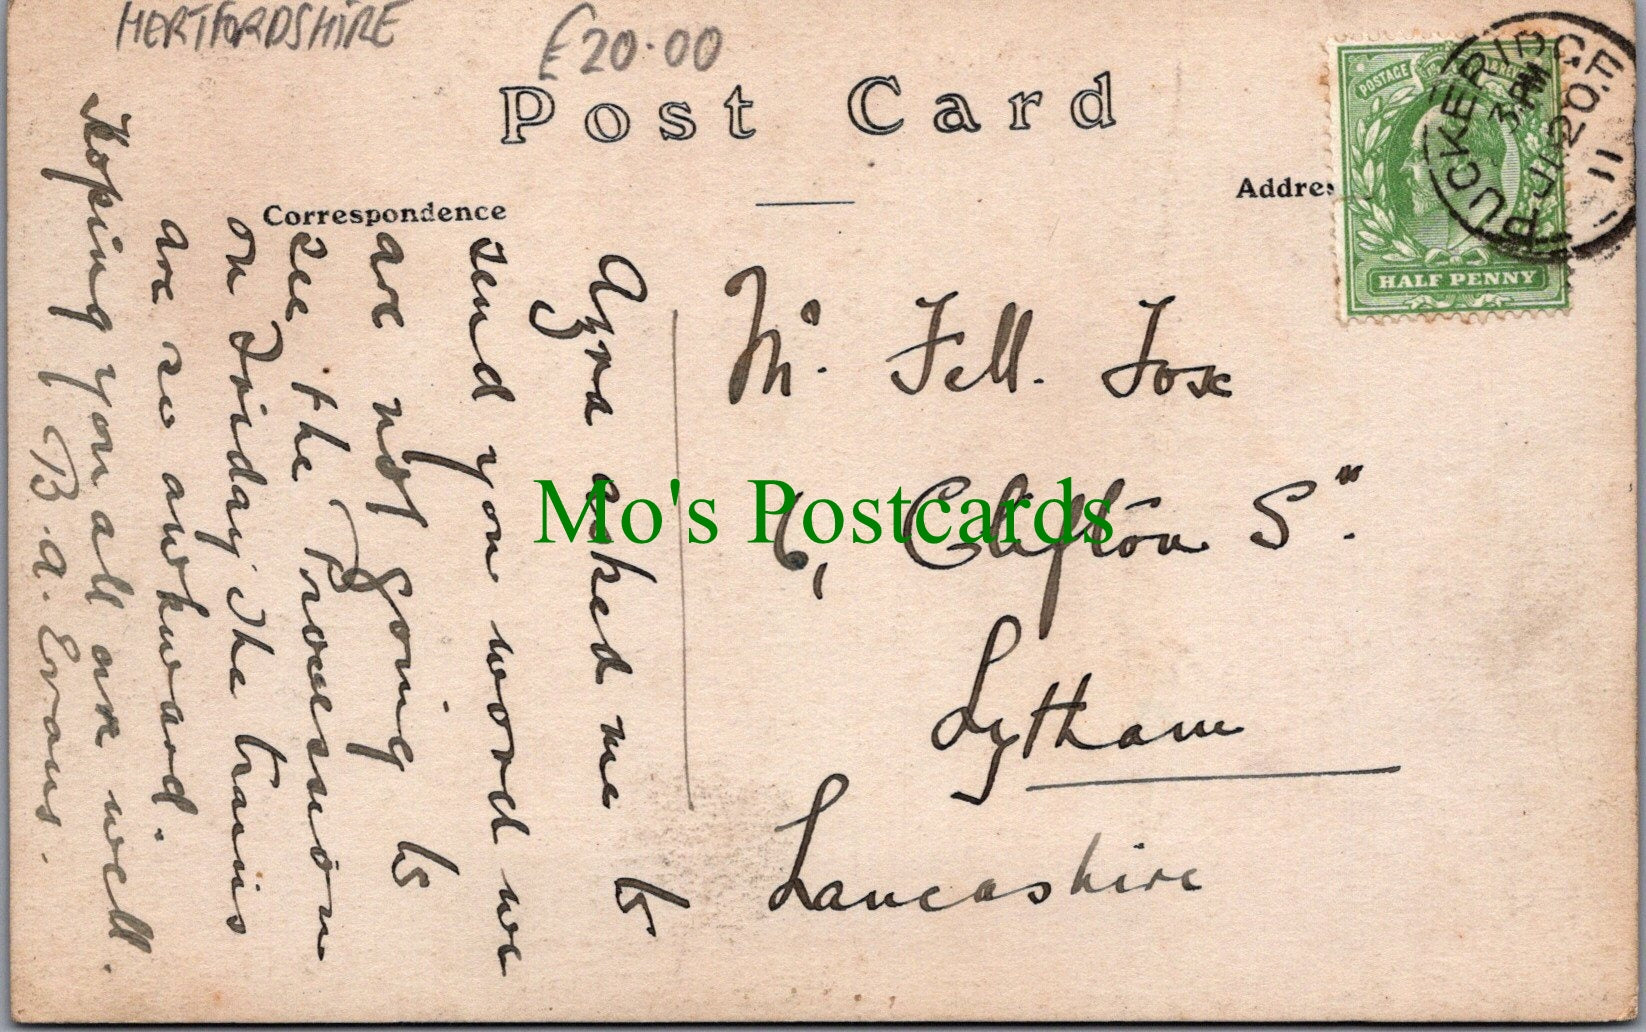 HERTFORDSHIRE
£20.00
Post Card
Correspondence
Addres
POSTAGE
HALF PENNY
PUCKERIDGE
3 PM
JU 20
11
Azra asked me to
send you word we
are not going to
see the Procession
on Friday, The trains
are so awkward.
Hoping you all are well.
B. A. Evans.
Mr. Fell. Fox
6, Clifton St.
Lytham
Lancashire
Mo's Postcards